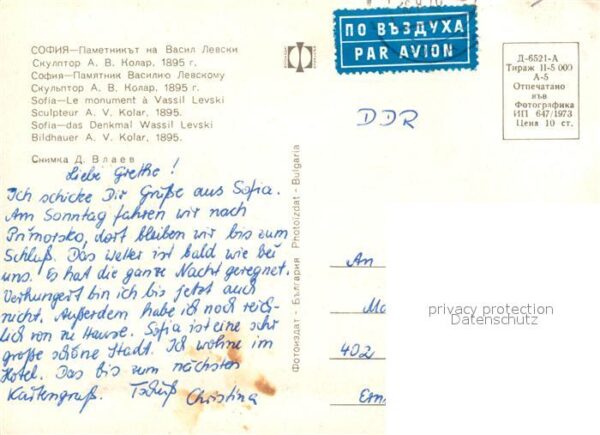 СОФИЯ—Паметникът на Васил Левски
Скулптор А. В. Колар, 1895 г.
София—Памятник Василию Левскому
Скульптор А. В. Колар, 1895 г.
Sofia—Le monument à Vassil Levski
Sculpteur A. V. Kolar, 1895.
Sofia—das Denkmal Wassil Levski
Bildhauer A. V. Kolar, 1895.
Снимка Д. Влаев
ПО ВЪЗДУХА
PAR AVION
Д-6521-А
Тираж Н-5 000
А-5
Отпечатано
във
Фотографика
ИП 647/1973
Цена 10 ст.
DDR
Liebe Grethe!
Ich schicke Dir Grüße aus Sofia.
Am Sonntag fahren wir nach
Primorsko, dort bleiben wir bis zum
Schluß. Das Wetter ist bald wie bei
uns. Es hat die ganze Nacht geregnet.
Verhungert bin ich bis jetzt auch
nicht. Außerdem habe ich noch reich-
lich von zu Hause. Sofia ist eine sehr
große schöne Stadt. Ich wohne im
Hotel. Das bis zum nächsten
Kartengruß. Tschüß
Christina
Фотоиздат - България Photoizdat - Bulgaria
An
402
privacy protection
Datenschutz